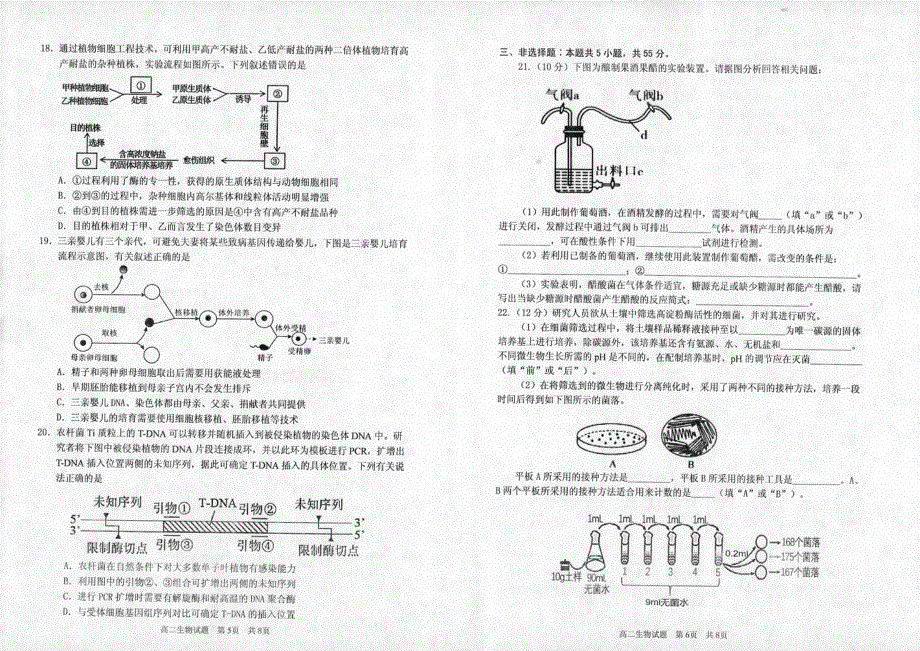 18. 通过植物细胞工程技术，可利用甲高产不耐盐、乙低产耐盐的两种二倍体植物培育高
产耐盐的杂种植株，实验流程如图所示。下列叙述错误的是
甲种植物细胞
乙种植物细胞
①
处理
甲原生质体
乙原生质体
诱导
②
再生细胞壁
目的植株
选择
④
含高浓度钠盐
的固体培养基培养
愈伤组织
③
A. ①过程利用了酶的专一性，获得的原生质体结构与动物细胞相同
B. ②到③的过程中，杂种细胞内高尔基体和线粒体活动明显增强
C. 由④到目的植株需进一步筛选的原因是④中含有高产不耐盐品种
D. 目的植株相对于甲、乙而言发生了染色体数目变异
19. 三亲婴儿有三个亲代，可避免夫妻将某些致病基因传递给婴儿，下图是三亲婴儿培育
流程示意图，有关叙述正确的是
去核
捐献者卵母细胞
核移植
体外培养
取核
母亲卵母细胞
体外受精
精子
受精卵
三亲婴儿
A. 精子和两种卵母细胞取出后需要用获能液处理
B. 早期胚胎能移植到母亲子宫内不会发生排斥
C. 三亲婴儿DNA、染色体都由母亲、父亲、捐献者共同提供
D. 三亲婴儿的培育需要使用细胞核移植、胚胎移植等技术
20. 农杆菌 Ti 质粒上的 T-DNA 可以转移并随机插入到被侵染植物的染色体 DNA 中。研
究者将下图中被侵染植物的 DNA 片段连接成环，并以此环为模板进行 PCR，扩增出
T-DNA 插入位置两侧的未知序列，据此可确定 T-DNA 插入的具体位置。下列有关说
法正确的是
未知序列
引物①
T-DNA
引物②
未知序列
5'
3'
3'
5'
限制酶切点
引物③
引物④
限制酶切点
A. 农杆菌在自然条件下对大多数单子叶植物有感染能力
B. 利用图中的引物②、③组合可扩增出两侧的未知序列
C. 进行 PCR 扩增时需要有解旋酶和耐高温的 DNA 聚合酶
D. 与受体细胞基因组序列对比可确定 T-DNA 的插入位置
高二生物试题 第5页 共8页
三、非选择题：本题共 5 小题，共 55 分。
21. (10 分) 下图为酿制果酒果醋的实验装置。请据图分析回答相关问题：
气阀a
气阀b
d
出料口c
（1）用此制作葡萄酒，在酒精发酵的过程中，需要对气阀____（填“a”或“b”）
进行关闭，发酵过程中通过气阀 b 可排出________气体。酒精产生的具体场所为
________，可在酸性条件下用____________试剂进行检测。
（2）若利用已制备的葡萄酒，继续使用此装置制作葡萄醋，需改变的条件是：
①____________________；②____________________________________。
（3）实验表明，醋酸菌在气体条件适宜，糖源充足或缺少糖源时都能产生醋酸，请
写出当缺少糖源时醋酸菌产生醋酸的反应简式：____________________。
22. (12 分) 研究人员欲从土壤中筛选高淀粉酶活性的细菌，并对其进行研究。
（1）在细菌筛选过程中，将土壤样品稀释液接种至以________为唯一碳源的固体
培养基上进行培养，除碳源外，该培养基还含有氮源、水、无机盐和____________。
不同微生物生长所需的 pH 是不同的，在配制培养基时，pH 的调节应在灭菌________
（填“前”或“后”）。
（2）在将筛选到的微生物进行分离纯化时，采用了两种不同的接种方法，培养一段
时间后得到如下图所示的菌落。
A
B
平板 A 所采用的接种方法是________，平板 B 所采用的接种工具是________。A、
B 两个平板所采用的接种方法适合用来计数的是____（填“A”或“B”）。
1mL 1mL 1mL 1mL 1mL
0.2mL
168个菌落
175个菌落
167个菌落
10g土样
90mL
无菌水
1 2 3 4 5
9ml无菌水
高二生物试题 第6页 共8页